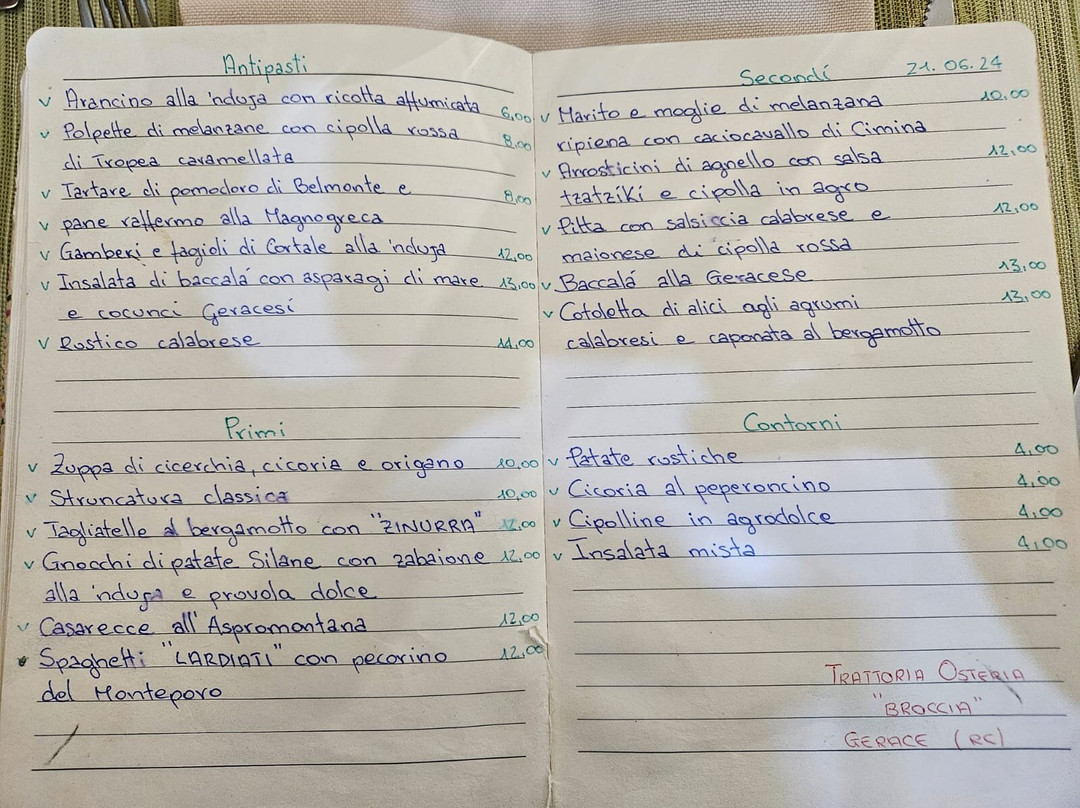 Antipasti
v Arancino alla 'nduja con ricotta affumicata 6,00
v Polpette di melanzane con cipolla rossa 8,00
di Tropea caramellata
v Tartare di pomodoro di Belmonte e 8,00
v pane raffermo alla Magnogreca
v Gamberi e fagioli di Cortale alla 'nduja 12,00
v Insalata di baccalá con asparagi di mare 13,00
e cocunci Geracesi
v Rustico calabrese 11,00
Primi
v Zuppa di cicerchia, cicoria e origano 10,00
v Struncatura classica 10,00
v Tagliatelle al bergamotto con "ZINURRA" 12,00
v Gnocchi di patate Silane con zabaione 12,00
alla 'nduja e provola dolce
v Casarecce all'Aspromontana 12,00
v Spaghetti "LARDIATI" con pecorino 12,00
del Monteporo
Secondi 21.06.24
v Marito e moglie di melanzana 10,00
ripiena con caciocavallo di Cimina
v Arrosticini di agnello con salsa 12,00
tzatziki e cipolla in agro
v Pitta con salsiccia calabrese e 12,00
maionese di cipolla rossa
v Baccalá alla Geracese 13,00
v Cotoletta di alici agli agrumi 13,00
calabresi e caponata al bergamotto
Contorni
v Patate rustiche 4,00
v Cicoria al peperoncino 4,00
v Cipolline in agrodolce 4,00
v Insalata mista 4,00
TRATTORIA OSTERIA
"BROCCIA"
GERACE (RC)